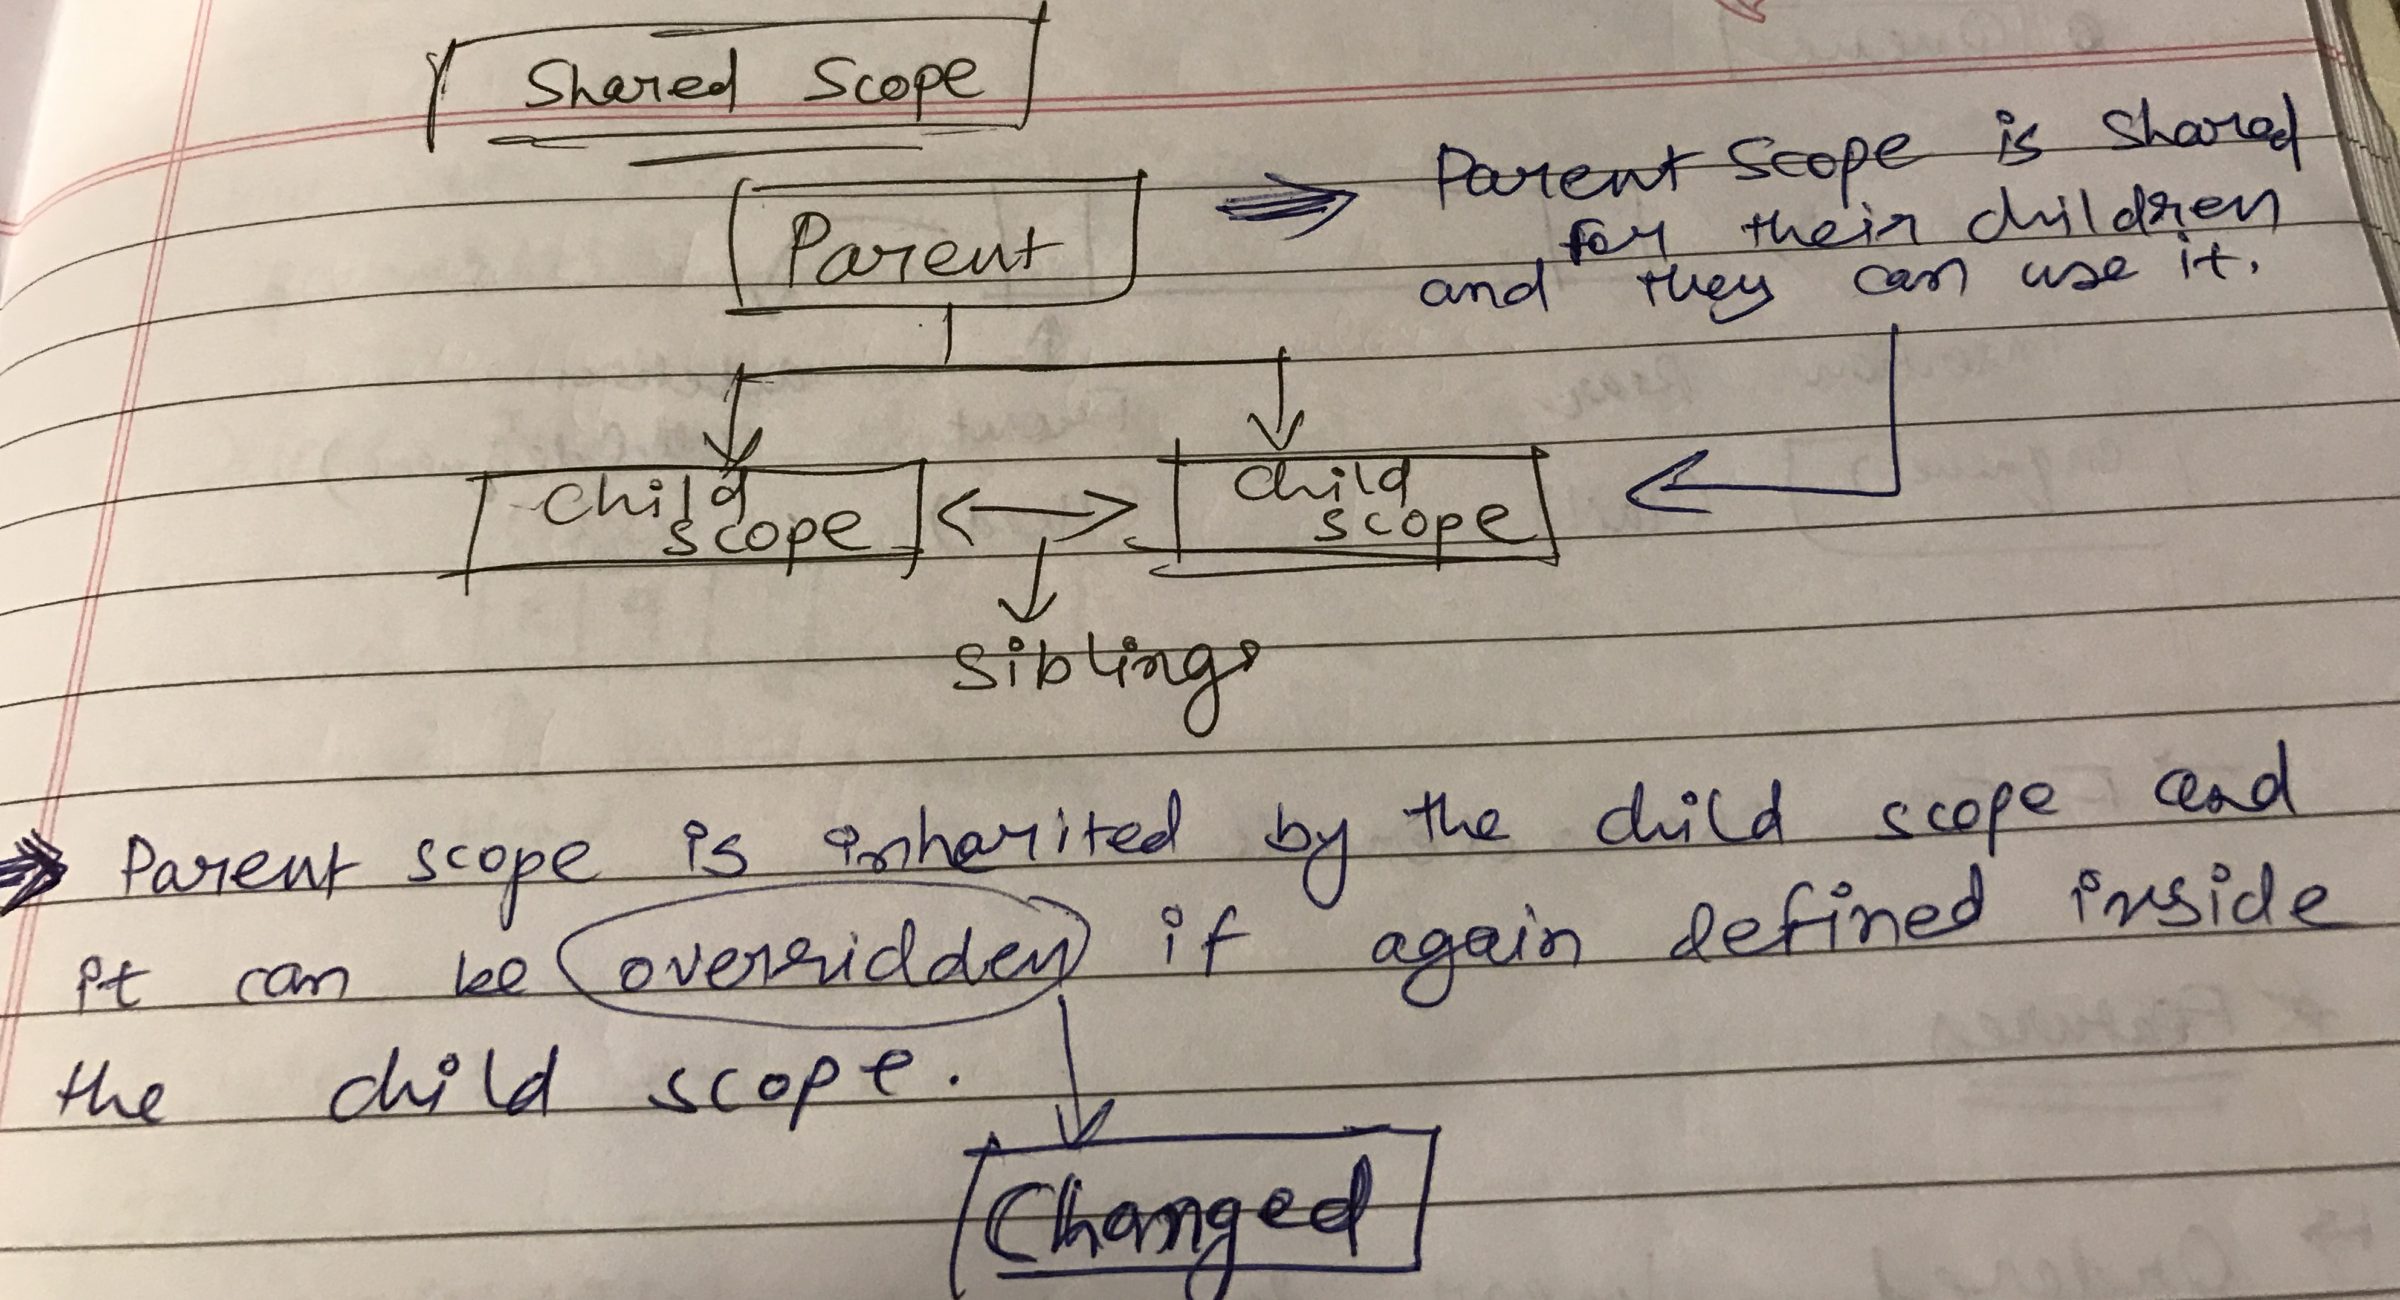 Shared Scope
Parent
Parent Scope is Shared
for their children
and they can use it.
Child
scope
child
scope
Siblings
Parent scope is inharited by the child scope and
it can be overridden if again defined inside
the child scope.
Changed